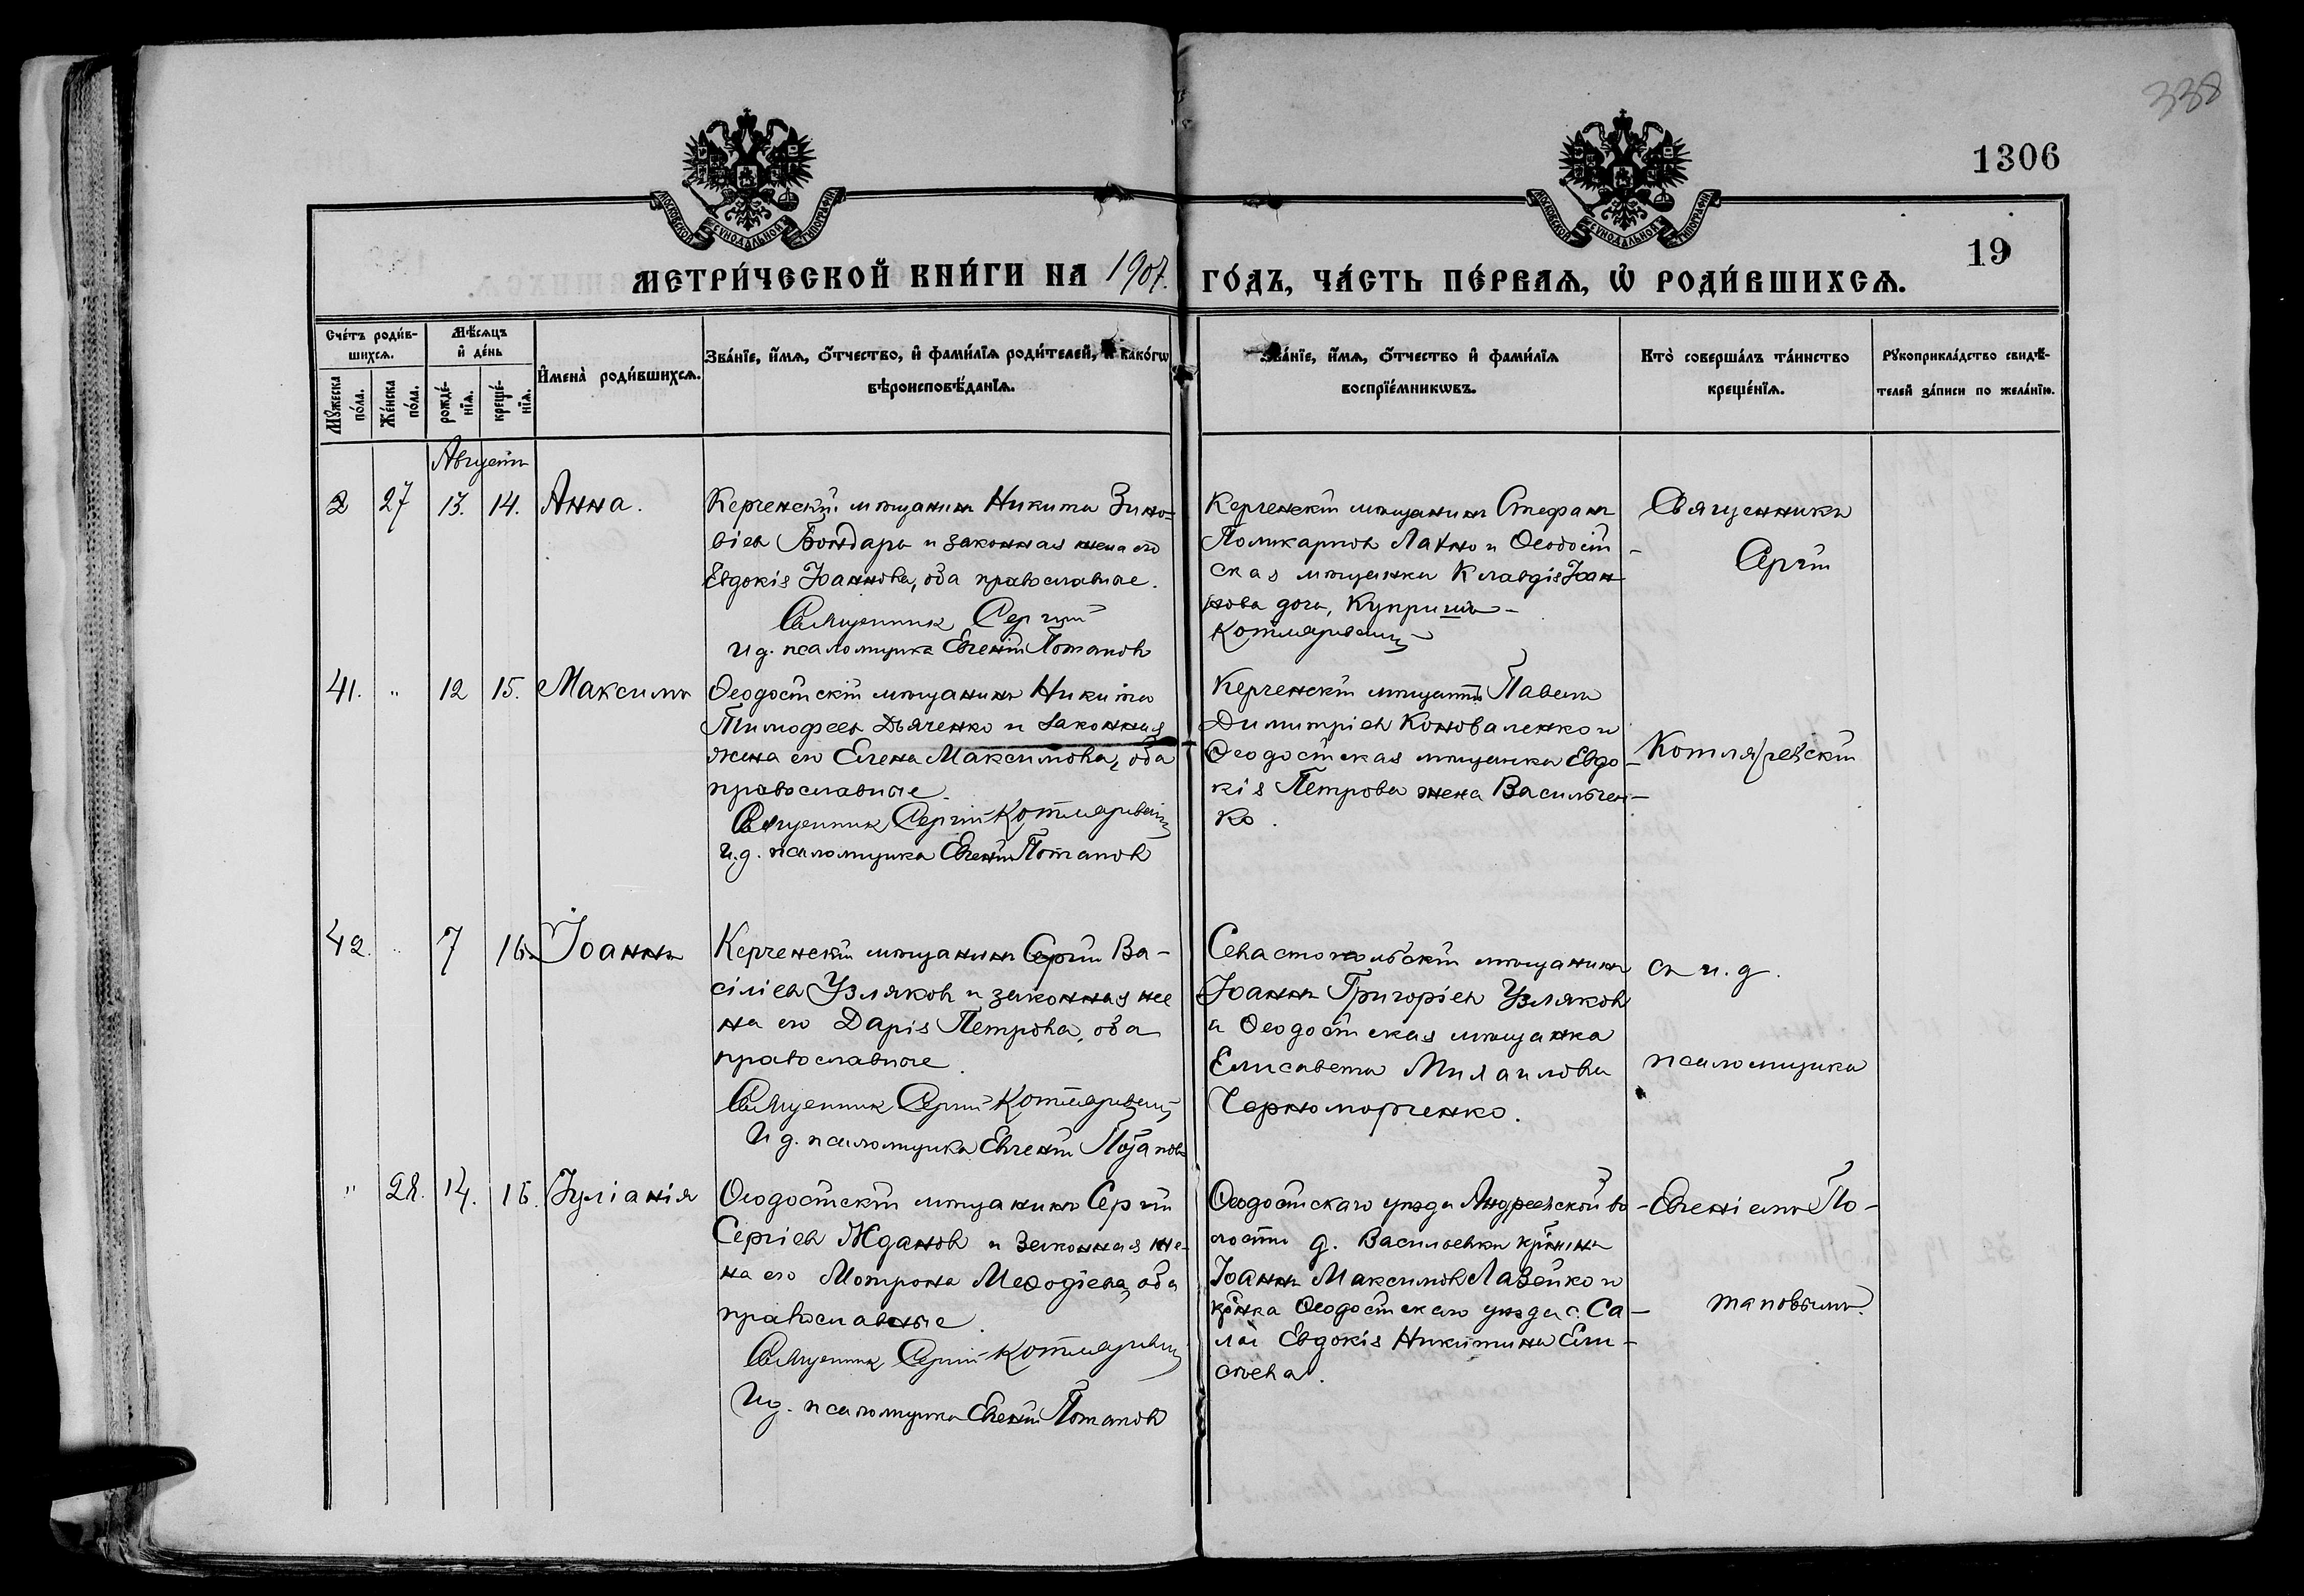 338
1306
19
МОСКОВСКОЙ СѴНОДАЛЬНОЙ ТИПОГРАФІИ
МОСКОВСКОЙ СѴНОДАЛЬНОЙ ТИПОГРАФІИ
МЕТРИ́ЧЕСКОЙ КНИ́ГИ НА 1907. ГО́ДЪ, ЧА́СТЬ ПЕ́РВАѦ, Ѽ РОДИ́ВШИХСѦ.
Сче́тъ роди́в-
шихсѧ.
Мꙋ́жеска по́ла.
Же́нска по́ла.
Мѣ́сѧцъ
и҆ де́нь
рожде́-
нїѧ.
креще́-
нїѧ.
И҆мена̀ роди́вшихсѧ.
Зва́нїе, и҆́мѧ, ѻ҆́тчество, и҆ фами́лїѧ роди́телей, и҆ како́гѡ
вѣроисповѣ́данїѧ.
Зва́нїе, и҆́мѧ, ѻ҆́тчество и҆ фами́лїѧ
воспрїе́мникѡвъ.
Кто̀ соверша́лъ та́инство
креще́нїѧ.
Рꙋкоприкла́дство свидѣ́-
телей за́писи по жела́нїю.
Августъ
2 27 13. 14. Анна.
Керченскій мѣщанинъ Никита Зино-
віевъ Бондарь и законная жена его
Евдокія Іоаннова, оба православные.
Священник Сергий
И д. псаломщика Евгеній Потаповъ
Керченскій мѣщанинъ Стефанъ
Поликарповъ Лахно и Ѳеодосій-
ская мѣщанка Клавдія Іоан-
нова дочь, Купришъ -
Котляревский
Священникъ
Сергій
41. " 12 15. Максимъ
Ѳеодосійскій мѣщанинъ Никита
Тимофеевъ Дьяченко и законная
жена его Елена Максимова, оба
православные.
Священник Сергий Котляревский
И.д. псаломщика Евгеній Потаповъ
Керченскій мѣщанинъ Павелъ
Димитріевъ Коноваленко и
Ѳеодосійская мѣщанка Евдо-
кія Петрова жена Васильчен-
ко.
Котляревскій
42. " 7 16. Іоаннъ
Керченскій мѣщанинъ Сергій Ва-
сіліевъ Узляковъ и законная же
на его Дарія Петрова, оба
православные.
Священник Сергий Котляревский
И д. псаломщика Евгеній Потаповъ
Севастопольскій мѣщанинъ
Іоаннъ Григоріевъ Узляковъ
и Ѳеодосійская мѣщанка
Елисавета Михаилова
Черноморченко.
съ и. д.
псаломщика
" 28. 14. 16. Іуліанія
Ѳеодосійскій мѣщанинъ Сергій
Сергіевъ Ждановъ и законная же-
на его Мотрона Меѳодіева, оба
православные.
Священник Сергий Котляревский
И д. псаломщика Евгеній Потаповъ
Ѳеодосійскаго уѣзда Андреевской во
лости д. Васильевки кр-нинъ
Іоаннъ Максимовъ Лазейко и
кр-нка Ѳеодосійскаго уѣзда с. Са-
лы Евдокія Никитина Ели-
сѣева.
Евгеніемъ По-
таповымъ.